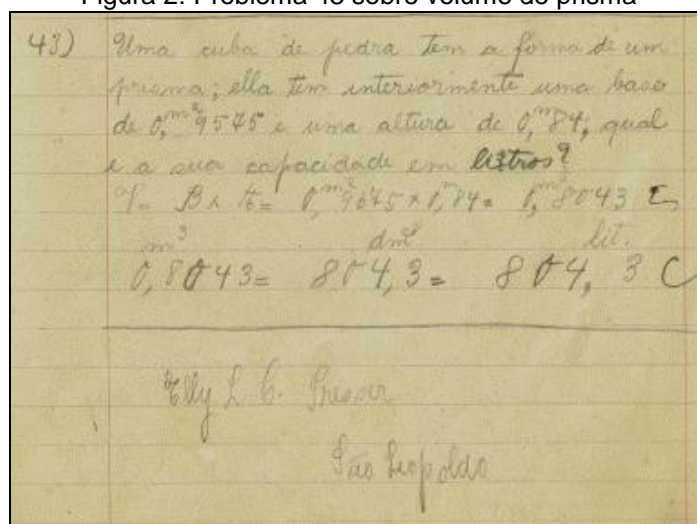 Figura 2: Problema 43 sobre volume do prisma
43) Uma cuba de pedra tem a forma de um
prisma; ella tem interiormente uma base
de 0,m²9575 e uma altura de 0,m84, qual
é a sua capacidade em listros?
V= B x A= 0,m²9575 x 0,m84= 0,m³8043 C
m³ dm³ lit.
0,8043= 804,3= 804,3 C
Elly L. C.
São Leopoldo